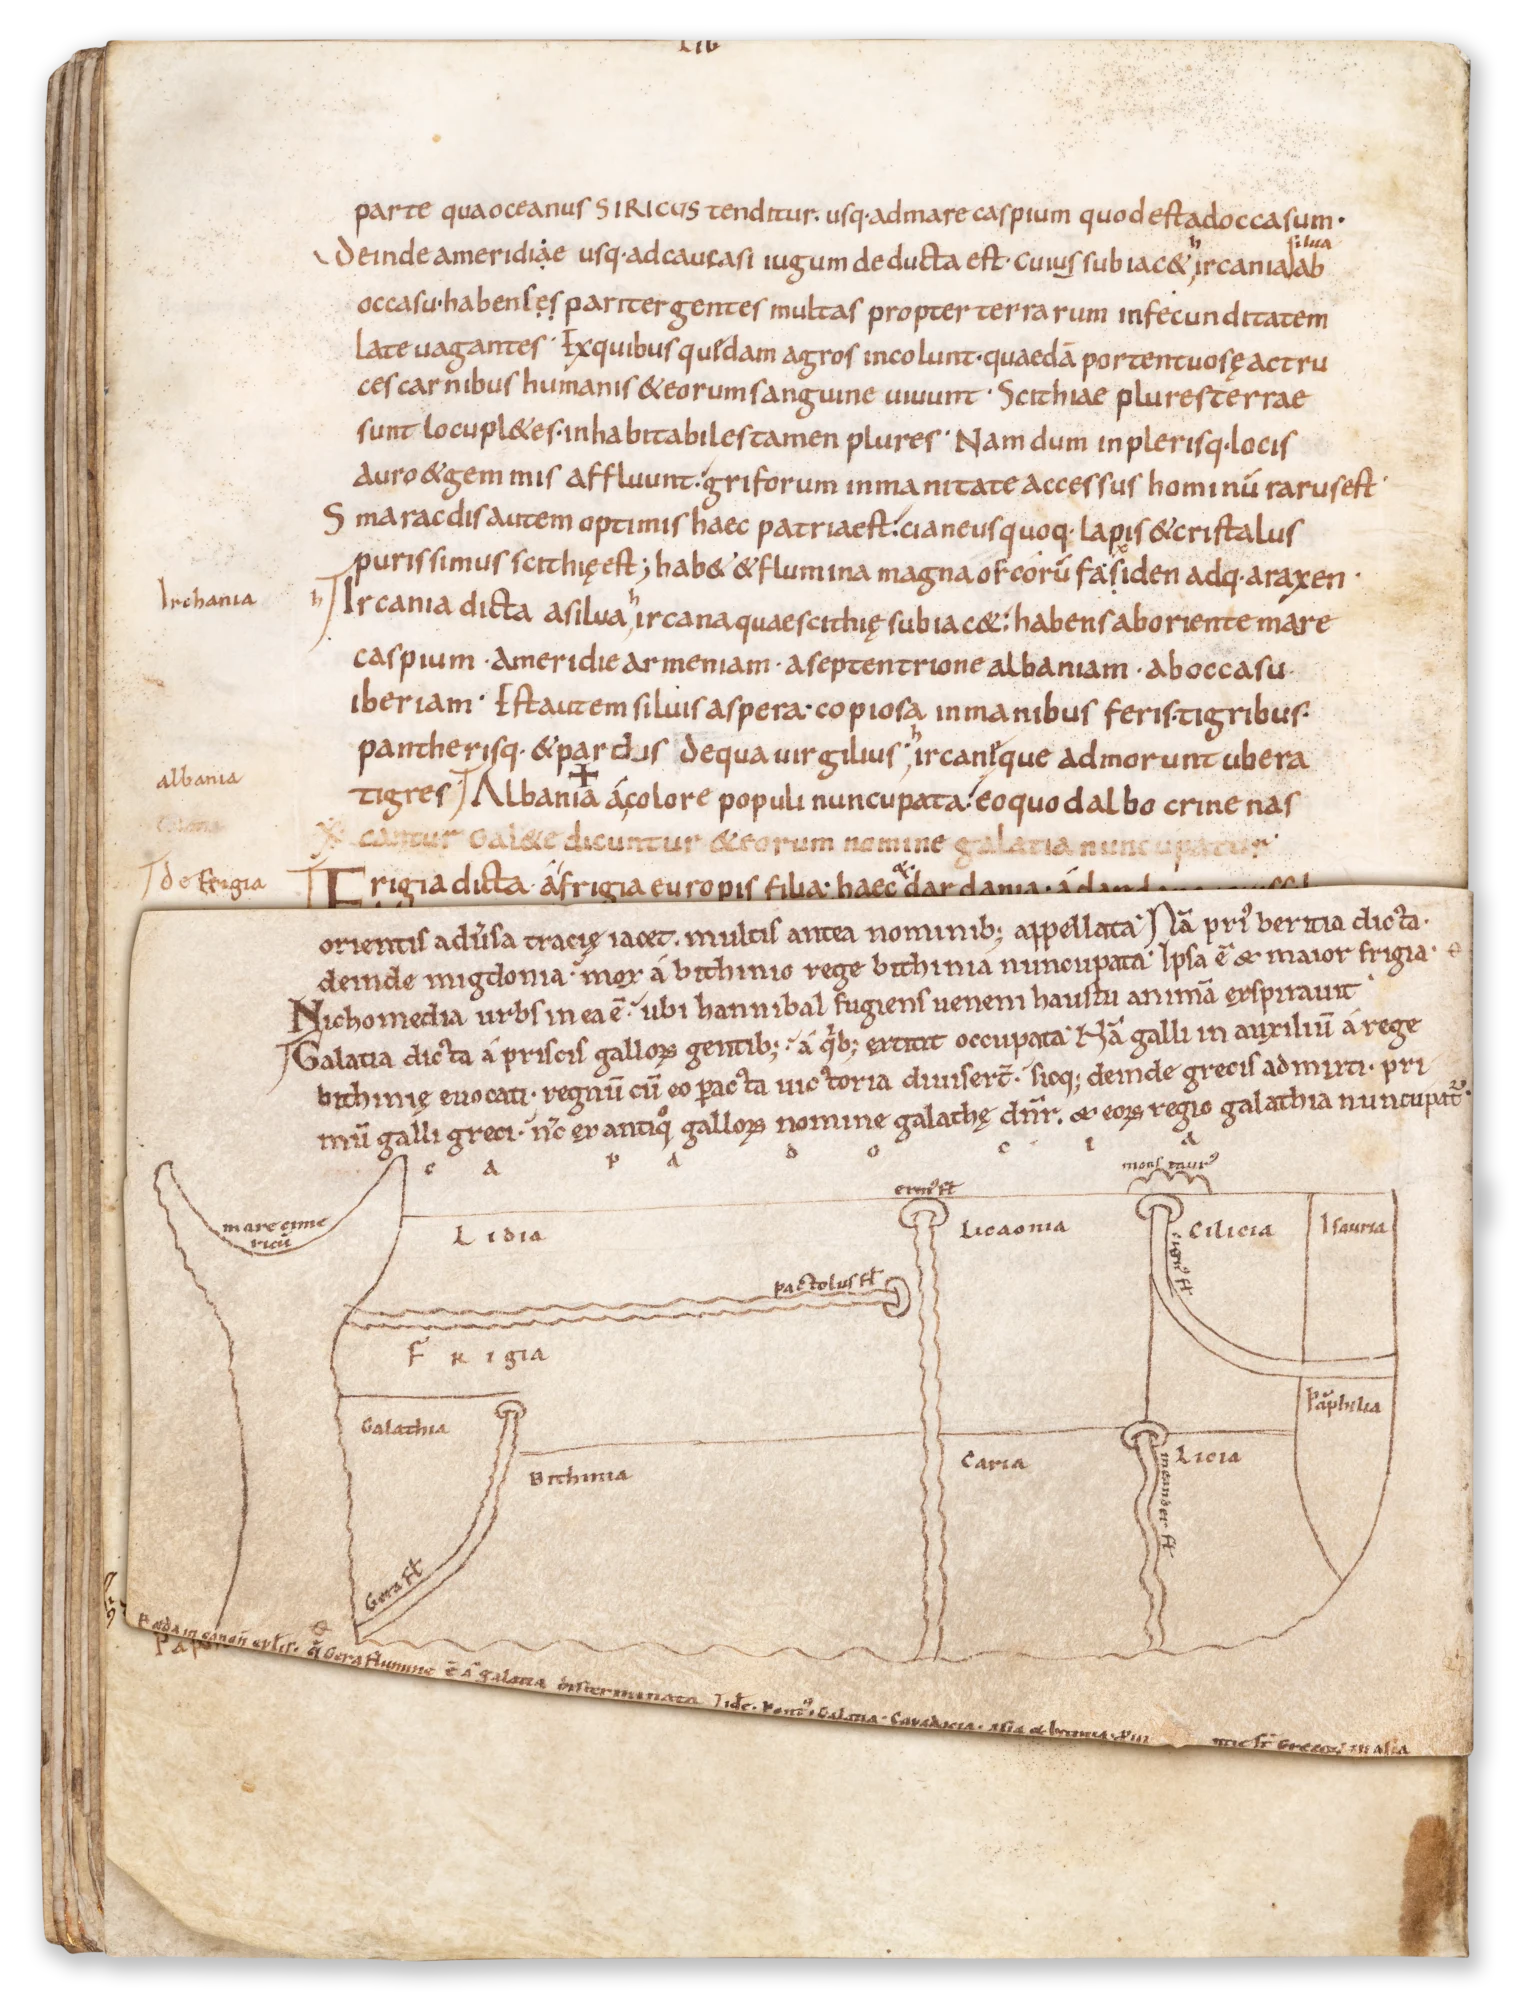 Lib
parte qua oceanus SIRICUS tenditur. usq· ad mare caspium quod est ad occasum·
Deinde a meridiae usq· ad caucasi iugum deducta est· Cuius subiac& hircania silua ab
occasu· habenses pariter gentes multas propter terrarum infecunditatem
late uagantes· Ex quibus quedam agros incolunt· quaedā portentuosę ac tru
ces carnibus humanis & eorum sanguine uiuunt· Scithiae plures terrae
sunt locupl&es· inhabitabiles tamen plures· Nam dum in plerisq· locis
auro & gemmis affluunt· griforum inmanitate accessus hominū rarus est·
Smaracdis autem optimis haec patria est· cianeus quoq· lapis & cristalus
purissimus scithię est; hab& & flumina magna oscorū fasiden adq· araxen·
Irchania
h Ircania dicta a silua hircana quae scithię subiac&· habens ab oriente mare
caspium· a meridie armeniam· a septentrione albaniam· ab occasu
iberiam· Est autem siluis aspera· copiosa inmanibus feris· tigribus·
pantherisq· & pardis De qua uirgilius· hircaneque admorunt ubera
albania
tigres Albania á colore populi nuncupata· eo quod albo crine nas
cantur Gal&e dicuntur & eorum nomine galatia nuncupatur·
de frigia
Frigia dicta· á frigia europis filia· haec dardania· á
orientis adūsa tracię iacet. multis antea nominib; appellata· Nā pri' beritia dicta·
deinde migdonia· mox á bithinio rege bithinia nuncupata· Ipsa ē & maior frigia·
Nichomedia urbs in ea ē· ubi hannibal fugiens ueneni haustu animā exspirauit
Galatia dicta á priscis galloꝝ gentib;· á qib; extitit occupata· Nā galli in auxiliū á rege
bithinię euocati· regnū cū eo pacta uictoria diuisert̄· sicq; deinde grecis admixti· pri
mū galli greci· nc̄ ex antiqo galloꝝ nomine galathę dnr̄. & eoꝝ regio galathia nuncupat̄·
c a p a d o c i a
mons taur'
mare cime
ricū
erm' fł
Lidia
Licaonia
Cilicia
Isauria
cign' fł
pactolus fł
Frigia
Pāphilia
Galathia
Bithinia
Caria
Licia
meander fł
Gera fł
Gera flumine ē á galatia disterminata
Galatia· Capadocia· asia & bitinia·
in asia